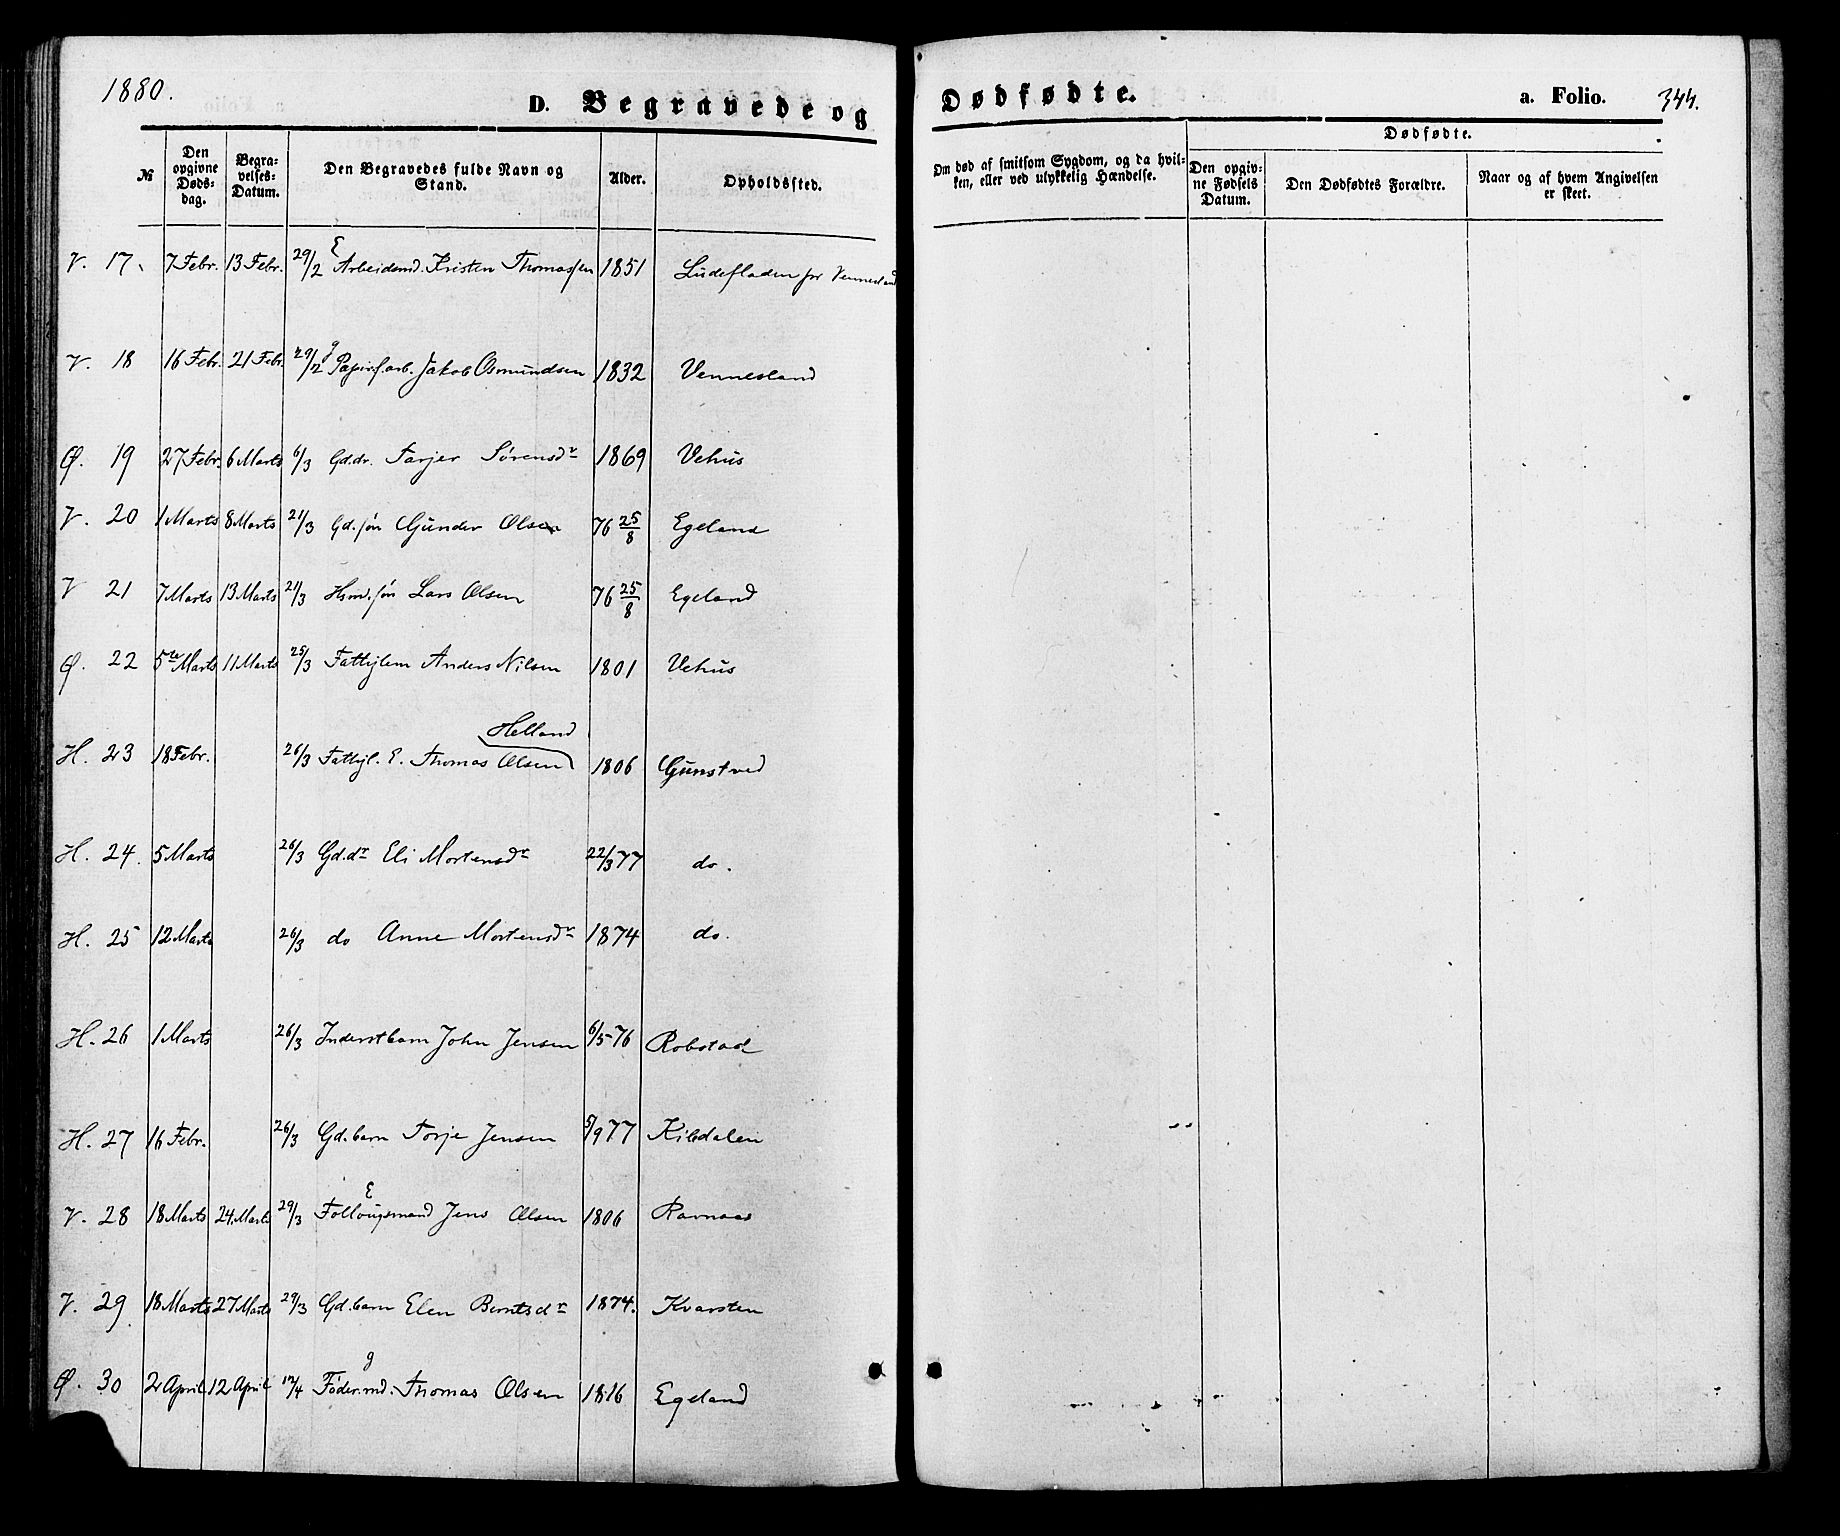 1880.
D. Begravede og Dødfødte.
a. Folio. 344.
№
Den opgivne Døds-dag.
Begra-velses-Datum.
Den Begravedes fulde Navn og Stand.
Alder.
Opholdssted.
Om død af smitsom Sygdom, og da hvil-ken, eller ved ulykkelig Hændelse.
Dødfødte.
Den opgiv-ne Fødsels Datum.
Den Dødfødtes Forældre.
Naar og af hvem Angivelsen er skeet.
V. 17. 7 Febr. 13 Febr. 29/2 E Arbeidsmd. Kristen Thomassen 1851 Ludefladen pr Vennesland
V. 18 16 Febr. 21 Febr. 29/2 g Papirf.arb. Jakob Osmundsen 1832 Vennesland
Ø. 19 27 Febr. 6 Marts 6/3 Gd.dr. Tarjer Sørensdr 1869 Vehus
V. 20 1 Marts 8 Marts 21/3 Gd.søn Gunder Olsen 76 25/8 Egeland
V 21 7 Marts 13 Marts 21/3 Hsmd.søn Lars Olsen 76 25/8 Egeland
Ø. 22 5te Marts 11 Marts 25/3 Fattiglem Anders Nilsen 1801 Vehus
Helland
H. 23 18 Febr. 26/3 Fattigl. E. Thomas Olsen 1806 Gunstved
H. 24. 5 Marts 26/3 Gd.dr Eli Mortensdr 22/3 77 do.
H. 25 12 Marts 26/3 do Anne Mortensdr 1874 do.
H. 26 1 Marts 26/3 Inderstbarn John Jensen 6/5 76 Robstad
H. 27 16 Febr. 26/3 Gd.barn Torje Jensen 5/9 77 Kiledalen
V. 28 18 Marts 24 Marts 29/3 E Follougsmand Jens Olsen 1806 Ravnaas
V. 29 18 Marts 27 Marts 29/3 Gd.barn Elen Berntsdr 1874. Kvarsten
Ø. 30 2 April 12 April 12/4 g Føder.md. Thomas Olsen 1816 Egeland